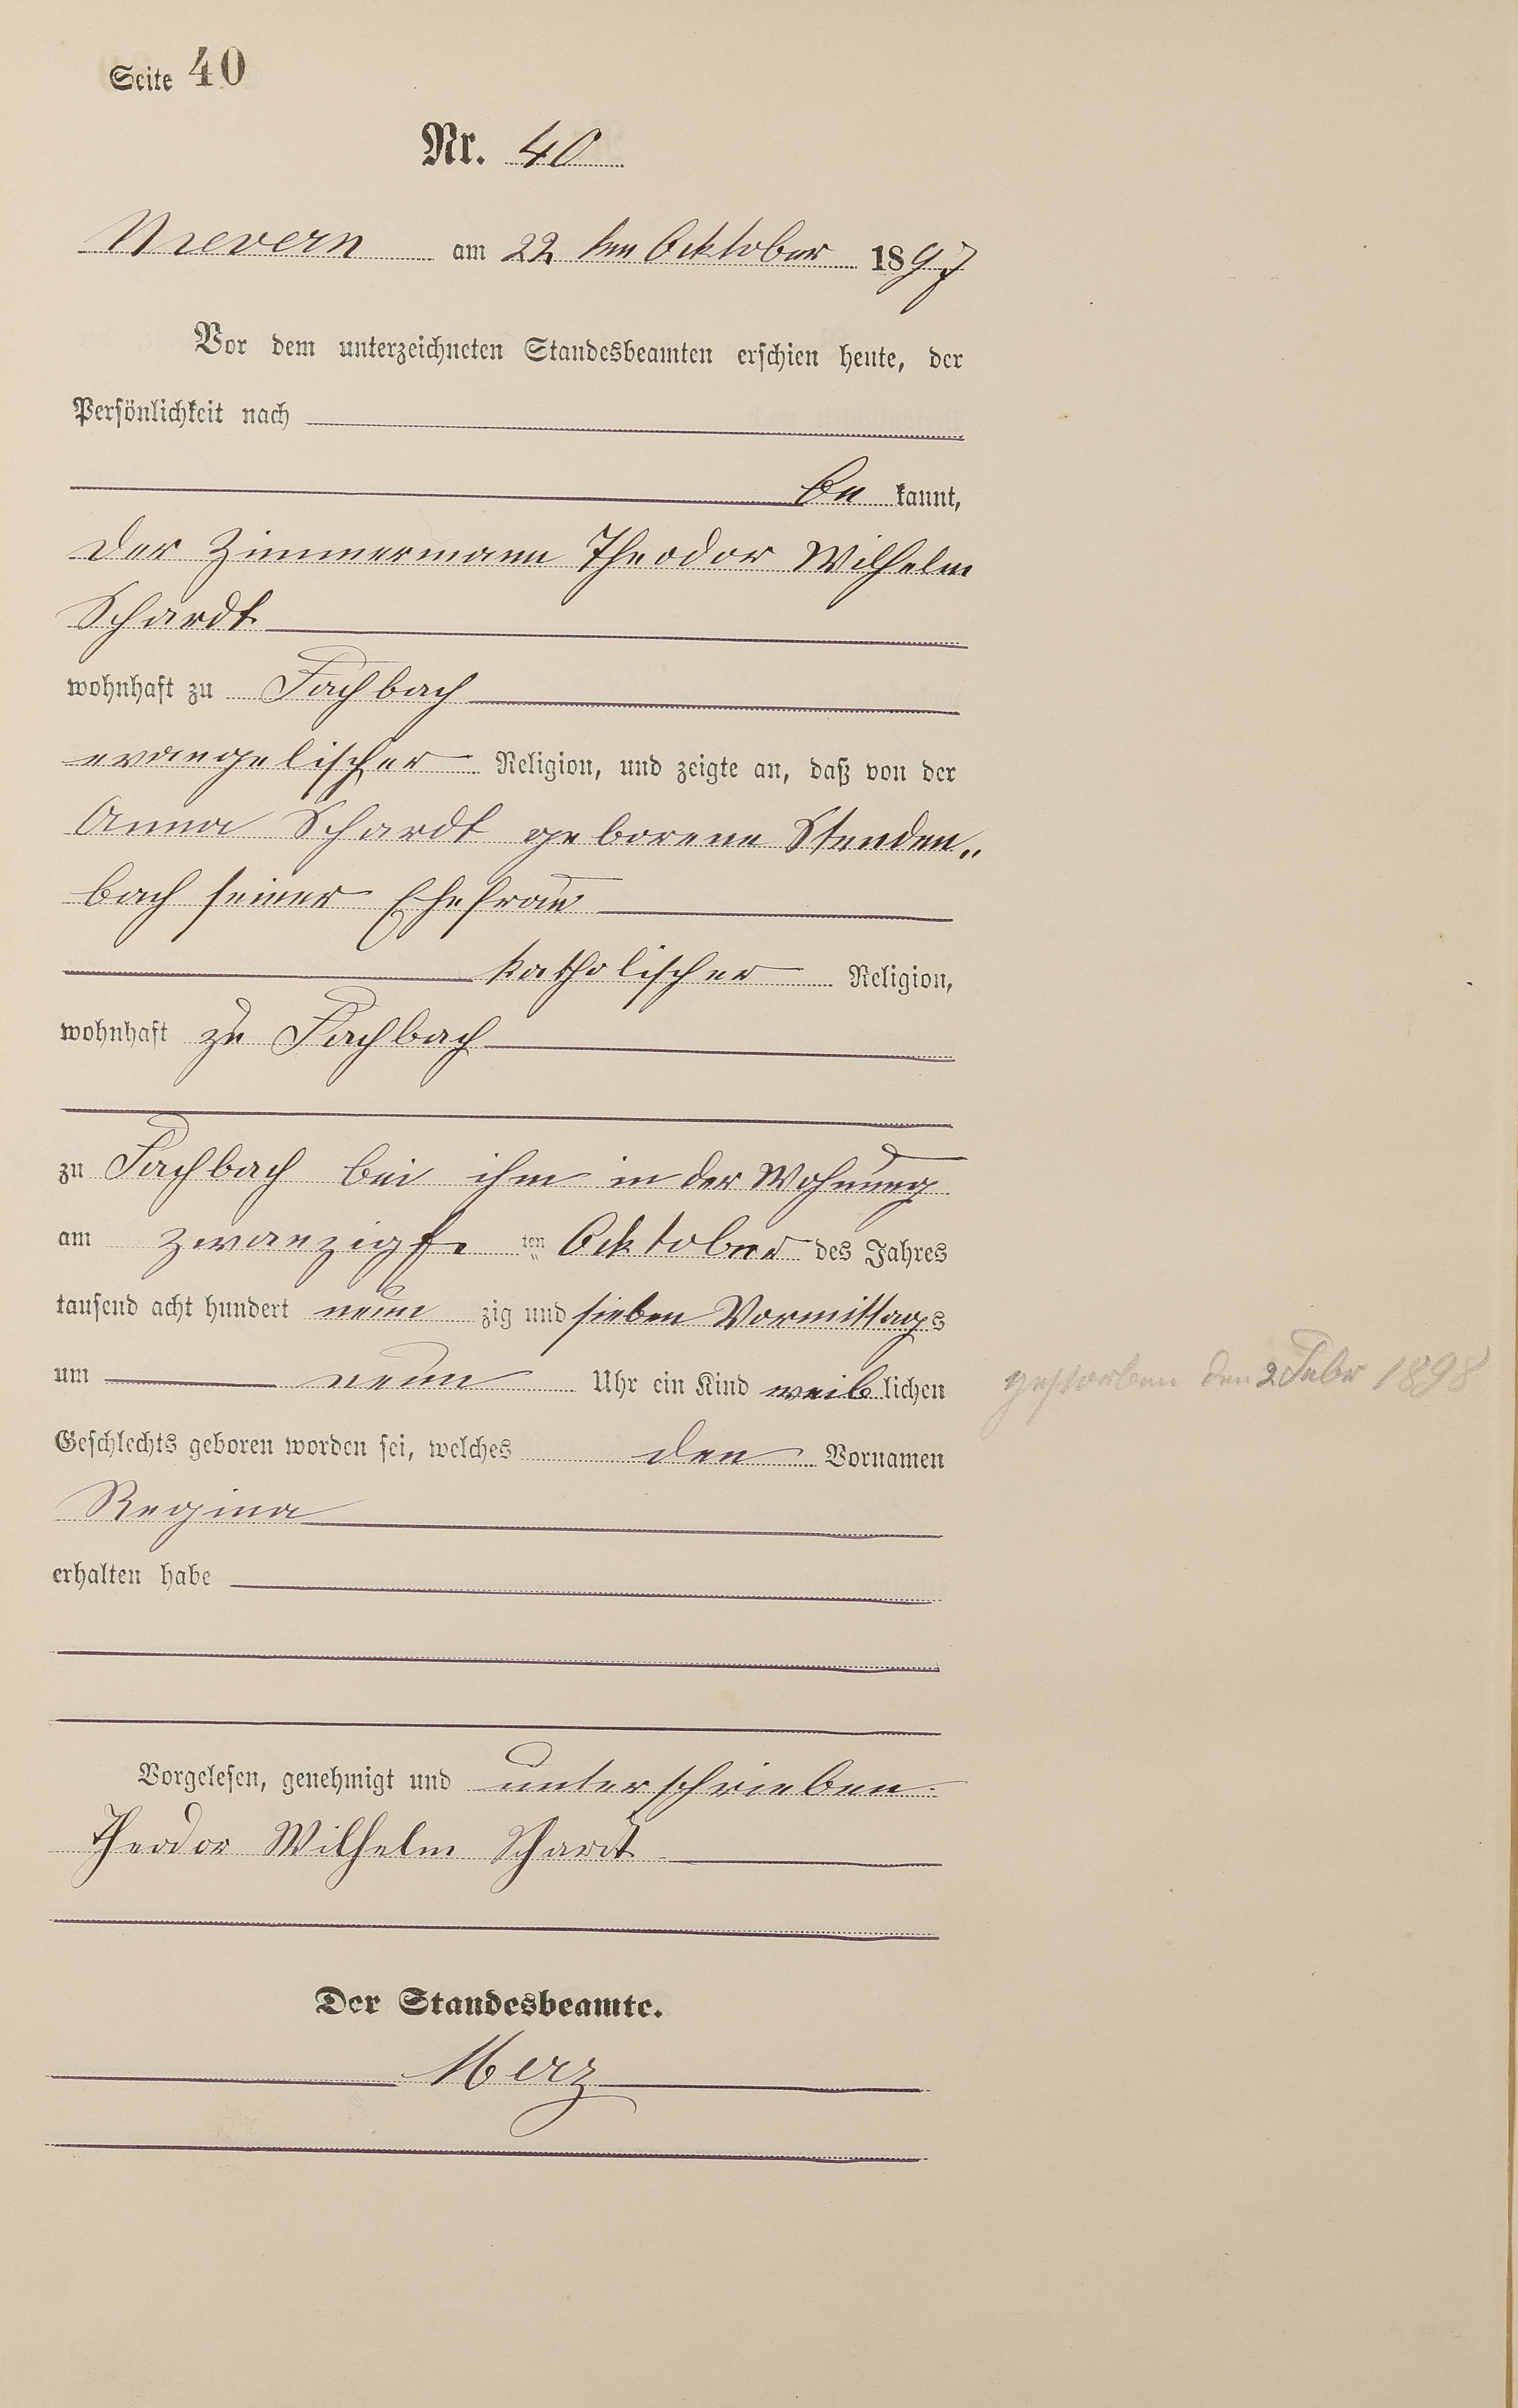 Seite 40
Nr. 40
Nievern am 22 ten Ocktober 1897
Vor dem unterzeichneten Standesbeamten erschien heute, der
Persönlichkeit nach
be kannt,
der Zimmermann Theodor Wilhelm
Schardt
wohnhaft zu Fachbach
evangelischer Religion, und zeigte an, daß von der
Anna Schardt geborene Stenden„
bach seiner Ehefrau
katholischer Religion,
wohnhaft zu Fachbach
zu Fachbach bei ihm in der Wohnung
am zwanzigste ten Ocktober des Jahres
tausend acht hundert neun zig und sieben Vormittags
um neun Uhr ein Kind weib lichen
gestorben den 2 Febr 1898
Geschlechts geboren worden sei, welches den Vornamen
Regina
erhalten habe
Vorgelesen, genehmigt und unterschrieben
Theodor Wilhelm Schardt
Der Standesbeamte.
Merz